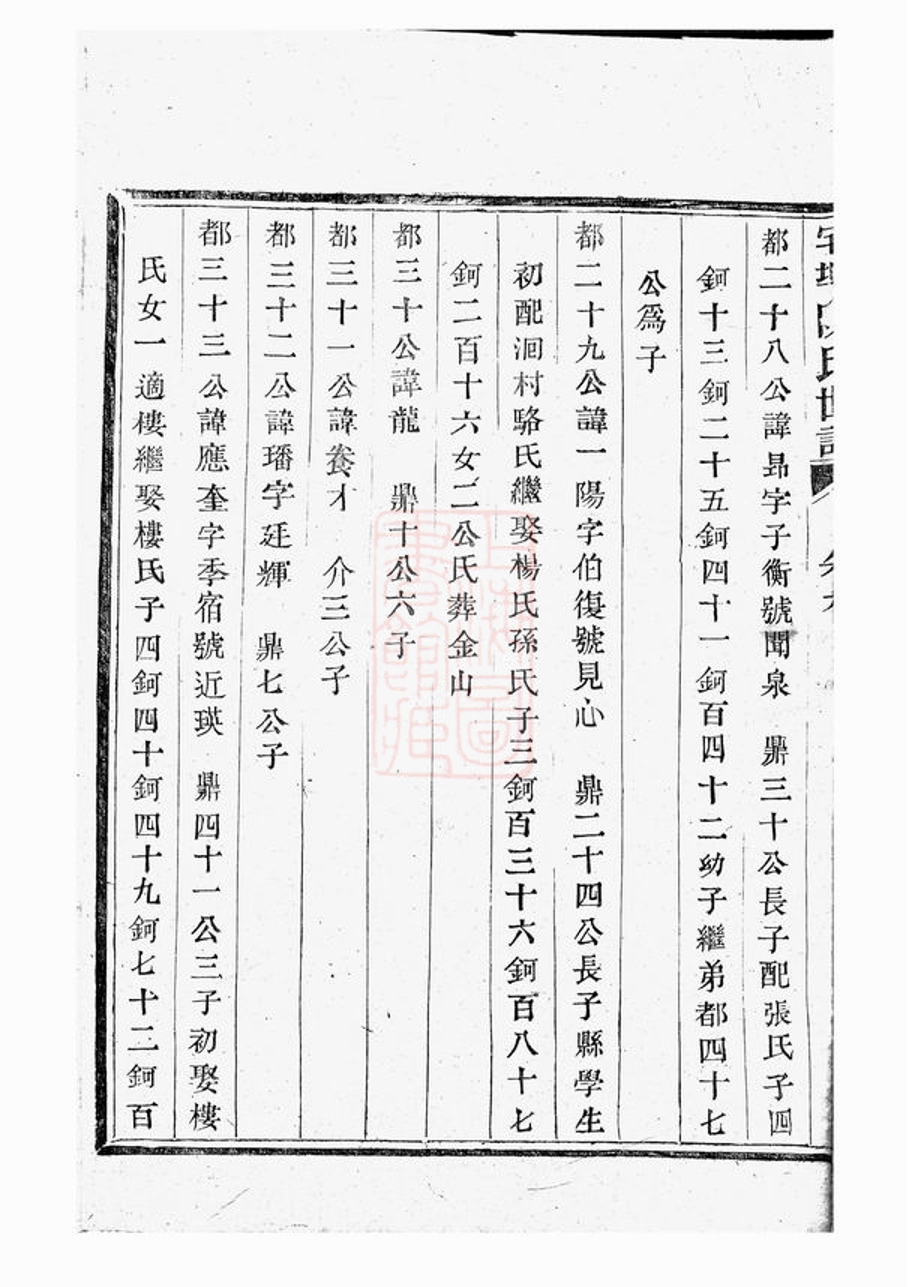 氏世譜
都二十八公諱昻字子衡號聞泉　鼎三十公長子配張氏子四
鈳十三鈳二十五鈳四十一鈳百四十二幼子繼弟都四十七
公爲子
都二十九公諱一陽字伯復號見心　鼎二十四公長子縣學生
初配洄村駱氏繼娶楊氏孫氏子三鈳百三十六鈳百八十七
鈳二百十六女二公氏葬金山
都三十公諱龍　鼎十公六子
都三十一公諱養才　介三公子
都三十二公諱璠字廷輝　鼎七公子
都三十三公諱應奎字季宿號近瑛　鼎四十一公三子初娶樓
氏女一適樓繼娶樓氏子四鈳四十鈳四十九鈳七十二鈳百